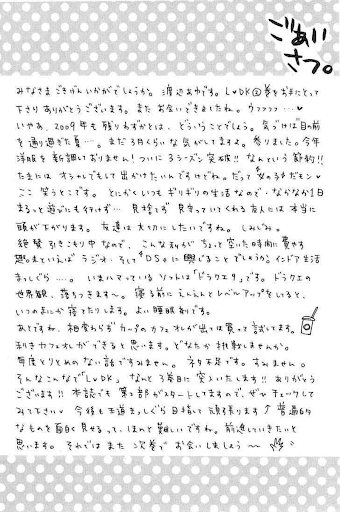 ごあい
さつ。
みなさま ごきげん いかがでしょうか。渡辺あゆです。L♥DK②巻をお手にとって
下さり ありがとうございます。また お会いできましたね。ウフフフフ…♥
いやぁ、2009年も 残りわずかとは、どういうことでしょう。気づけば目の前
を通り過ぎた夏…。まだ3月くらいな気がしてますよ。参りました。今年
洋服を新調しておりません!ついに 3シーズン突破!! なんという節約!!
たまには オシャレでもして 出かけたいんですけどね。だって女の子だモン♥
ここ 笑うとこです。とにかくいつもギリギリの生活なので・なかなか1日
まるっと遊びにも行けず… 見捨てず 見守っていてくれる友人には 本当に
頭が下がります。友達は大切にしたいですね。しみじみ。
絶賛 引きこもり中 なので、こんな私が ちょっと空いた時間に費やす
趣味といえば ラジオ・そして『DS』に興じることでしょうか。インドア生活
まっしぐら……。いまハマっている ソフトは「ドラクエ9」です。ドラクエの
世界観、落ちつきます〜。寝る前に えんえんとレベルアップをしていると、
いつの間にか 寝てたりします。よい睡眠剤です。
あとですね、相変わらず カップのカフェオレが出ては買って試してます。
利きカフェオレができると思います。どなたか 推敲しませんか。
毎度とりとめのない話ですみません。ネタ不足です。すみません。
そんなこんなで「L♥DK」なんと 3巻目に 突入いたします!! ありがとう
ございます!! 本誌でも 第2部がスタートしてますので、ぜひチェックして
みて下さい♥ 今後も 王道まっしぐら 目指して 頑張ります♪ 普遍的
なものを面白く見せるって、ほんと 難しいですね。前進していきたいと
思います。それでは また 次巻で お会いしましょう〜